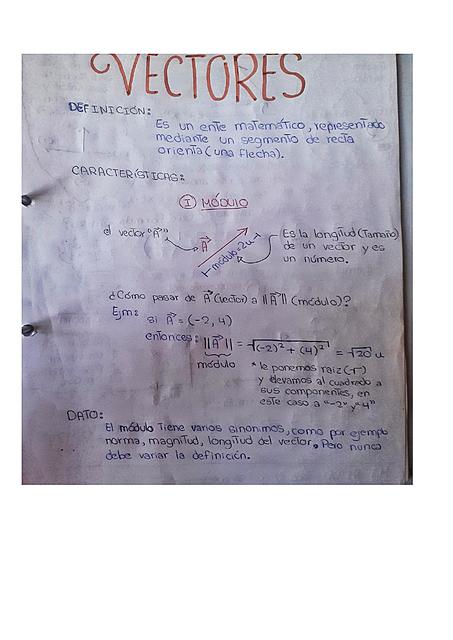 VECTORES
DEFINICIÓN:
Es un ente matemático, representado
mediante un segmento de recta
orienta (una flecha).
CARACTERÍSTICAS:
I MÓDULO
el vector "A⃗"
A⃗
módulo=2u
Es la longitud (Tamaño)
de un vector y es
un número.
¿Cómo pasar de A⃗ (vector) a ||A⃗|| (módulo)?
Ejm: si A⃗ = (-2, 4)
entonces: ||A⃗|| = √(-2)² + (4)² = √20 u
módulo
* le ponemos raiz (√)
y elevamos al cuadrado a
sus componentes, en
este caso a "-2" y "4"
DATO:
El módulo Tiene varios sinonimos, como por ejemplo
norma, magnitud, longitud del vector. Pero nunca
debe variar la definición.